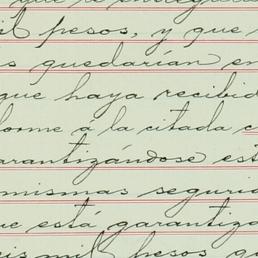 que
mil pesos, y que
quedarían en
que haya recibid
forme á la citada c
arantizándose est
mismas segurid
ue está garantiza
eis mil pesos